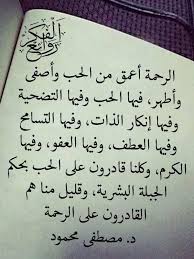 روائع الفكر
الرحمة أعمق من الحب وأصفى
وأطهر، فيها الحب وفيها التضحية
وفيها إنكار الذات، وفيها التسامح
وفيها العطف، وفيها العفو، وفيها
الكرم، وكلنا قادرون على الحب بحكم
الجبلة البشرية، وقليل منا هم
القادرون على الرحمة
د. مصطفى محمود